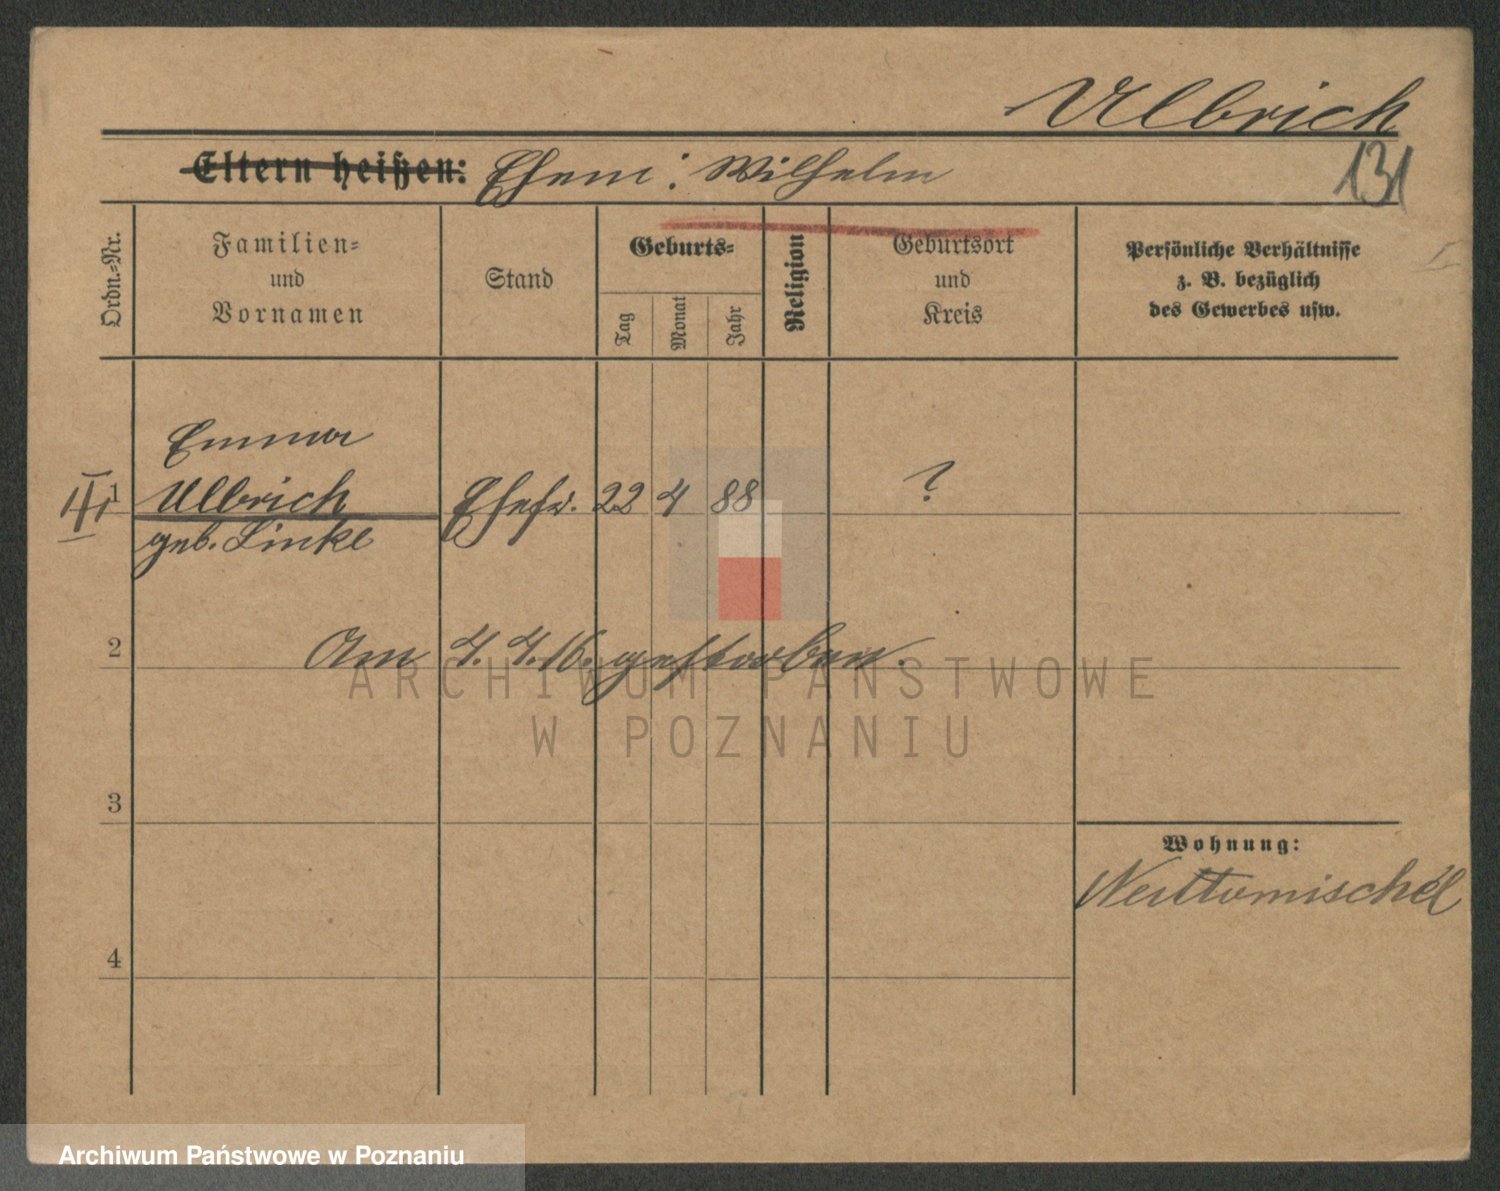 Ulbrich
Eltern heißen: Ehem: Wilhelm
131
Ordn.-Nr.
Familien-
und
Vornamen
Stand
Geburts-
Tag
Monat
Jahr
Religion
Geburtsort
und
Kreis
Persönliche Verhältnisse
z. B. bezüglich
des Gewerbes usw.
Emma
1 Ulbrich Ehefr. 22 4 88 ?
geb. Linke
2 Am 4. 4. 16. gestorben.
ARCHIWUM PAŃSTWOWE
W POZNANIU
3
Wohnung:
Neutomischel
4
Archiwum Państwowe w Poznaniu